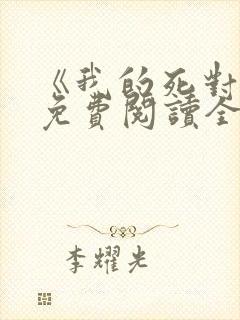 《我的死對
免費閱讀全
李耀光